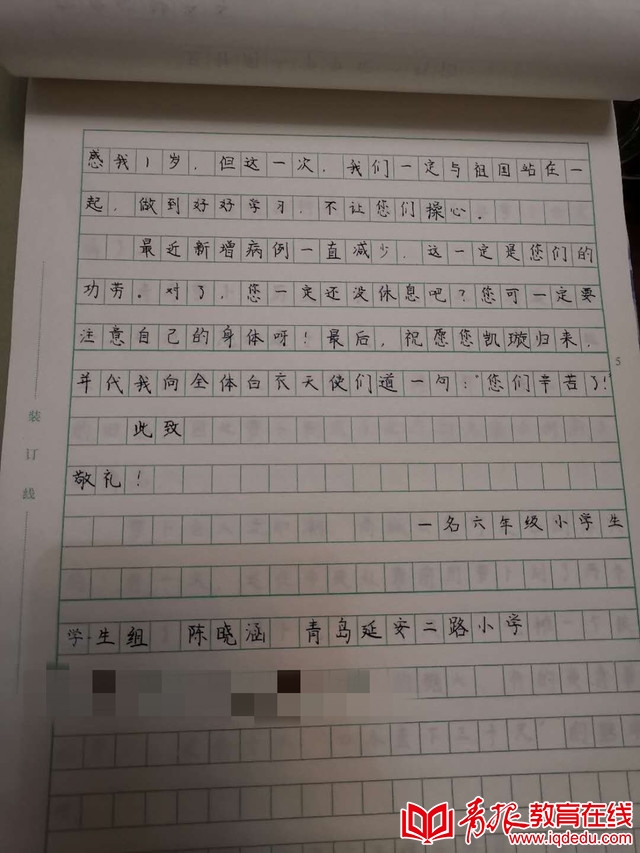 感我1岁，但这一次，我们一定与祖国站在一
起，做到好好学习，不让您们操心。
最近新增病例一直减少，这一定是您们的
功劳。对了，您一定还没休息吧？您可一定要
注意自己的身体呀！最后，祝愿您凯璇归来，
并代我向全体白衣天使们道一句："您们辛苦了！
5
此致
敬礼！
一名六年级小学生
学生组 陈晓涵 青岛延安二路小学
装订线
青报教育在线
www.iqdedu.com